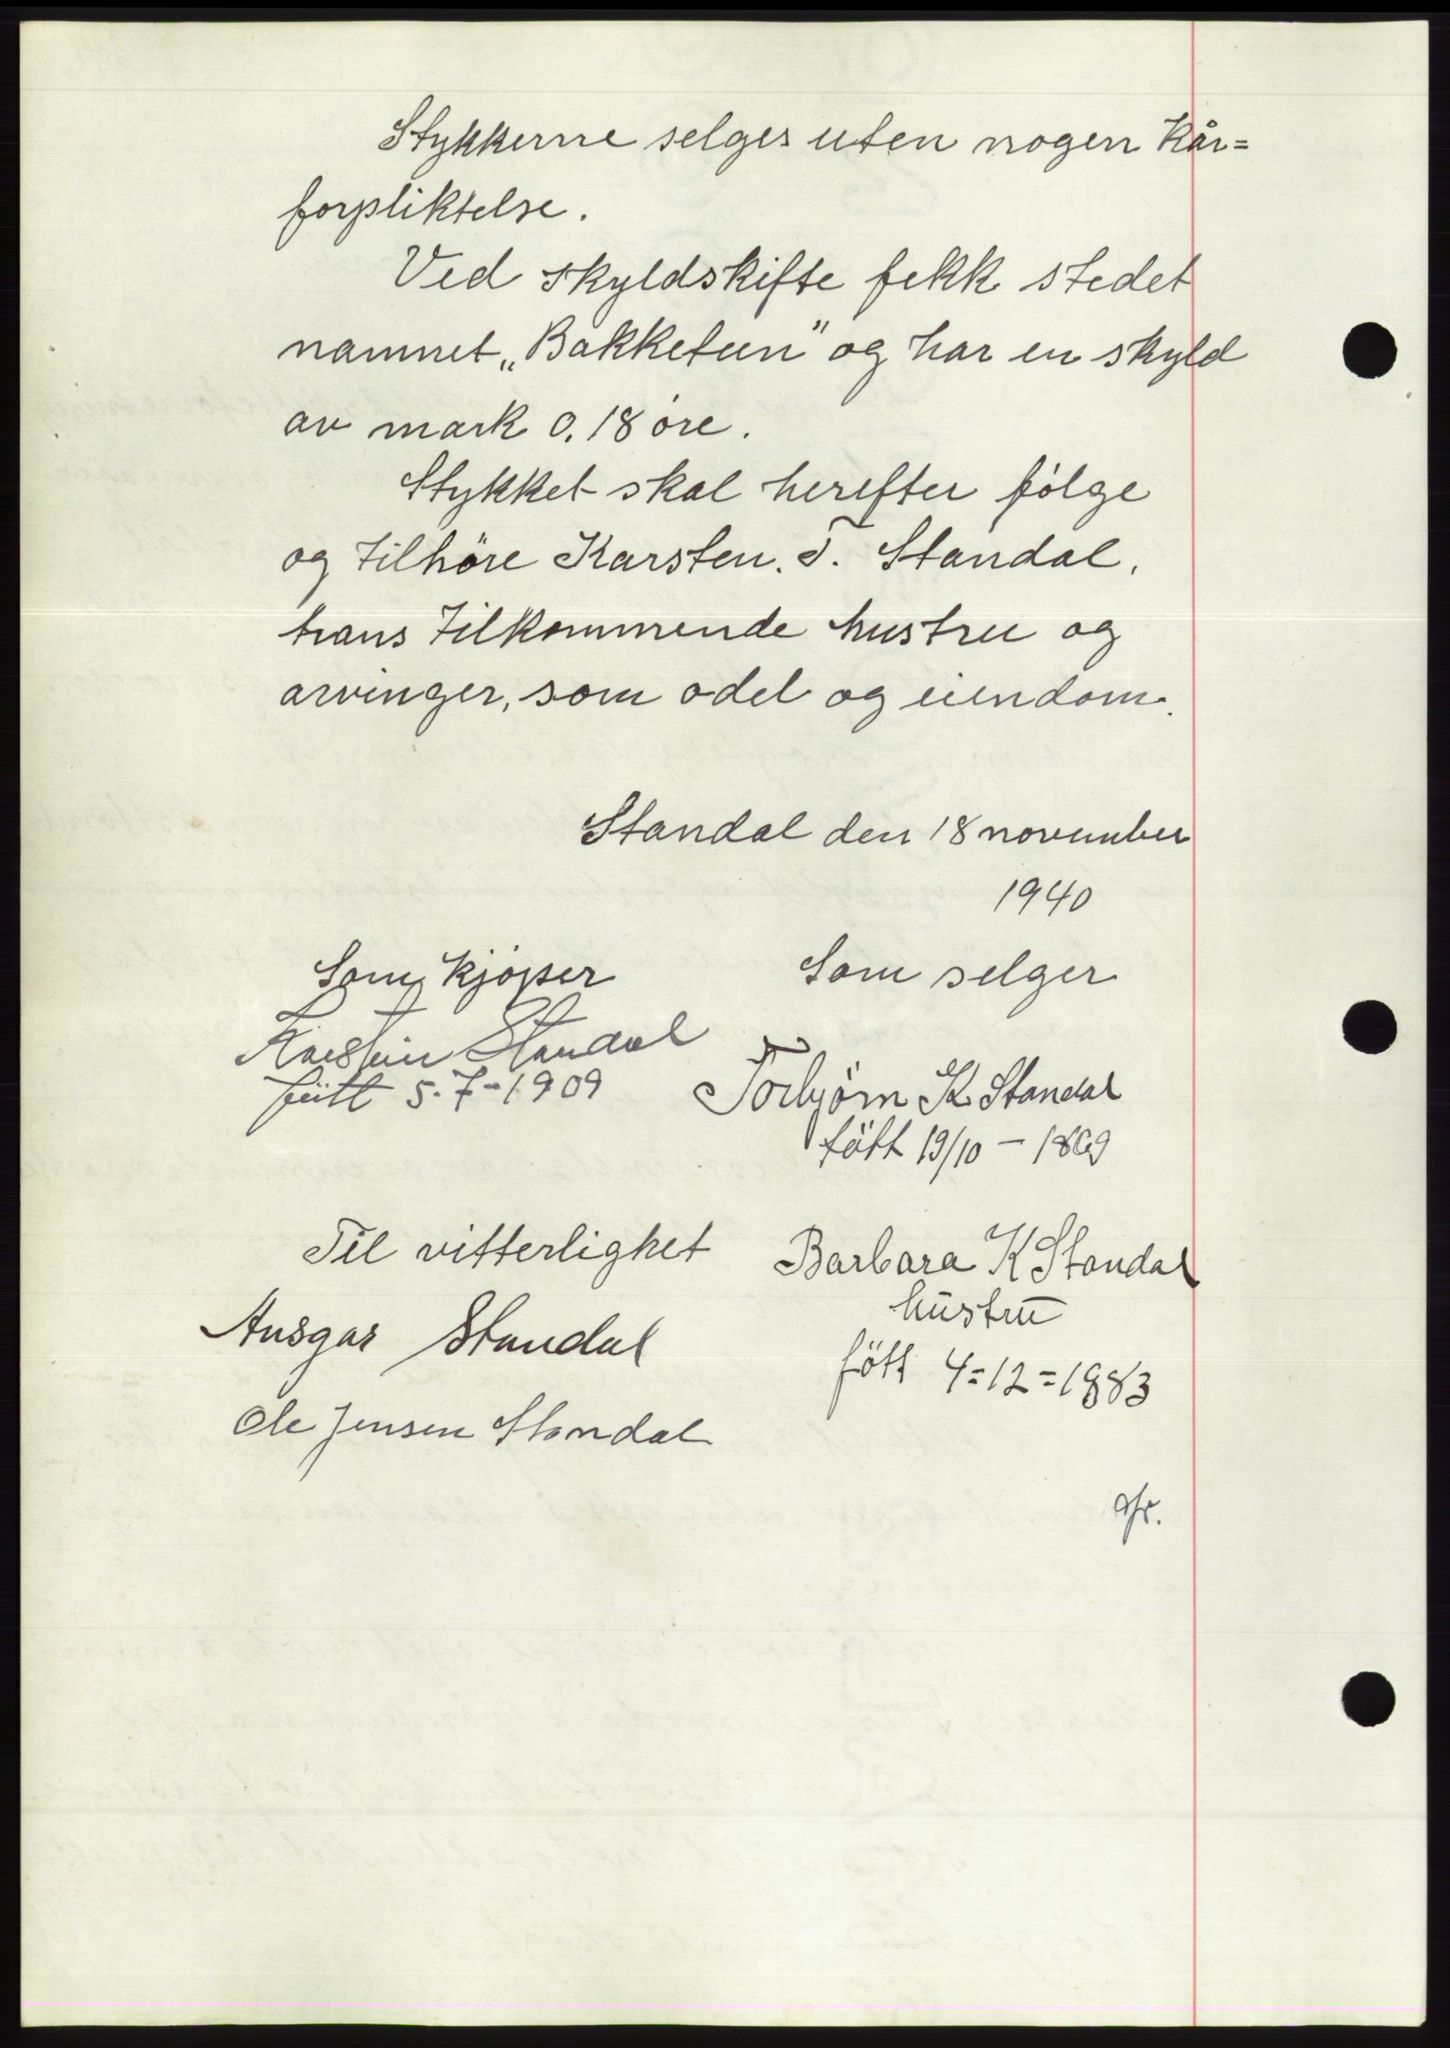 Stykkerne selges uten nogen kår=
forpliktelse.
Ved skyldskifte fekk stedet
namnet „Bakketun" og har en skyld
av mark 0.18 øre.
Stykket skal herefter følge
og tilhöre Karsten. T. Standal,
hans tilkommende hustru og
arvinger, som odel og eiendom.
Standal den 18 november
1940
Som kjøper
Som selger
Karsten Standal
født 5-7-1909
Torbjörn K Standal
fött 19/10 – 1869
Til vitterlighet
Barbara K Standal
hustru
fött 4=12=1883
Ansgar Standal
Ole Jensen Standal